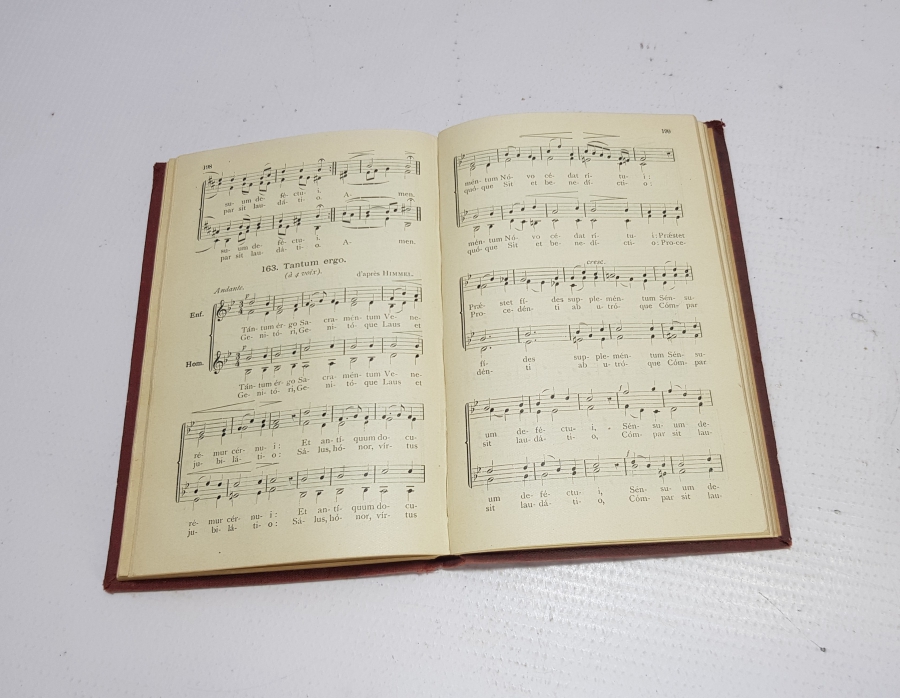 198
su- um de- fé- ctu- i. A- men.
par sit lau- dá- ti- o. A- men.
su- um de- fé- ctu- i. A- men.
par sit lau- dá- ti- o.
163. Tantum ergo.
(à 4 voix). d'après HIMMEL.
Andante.
Enf.
p
Tán- tum ér- go Sa- cra- mén- tum Ve- ne-
Ge- ni- tó- ri, Ge- ni- tó- que Laus et
Hom.
p
Tán- tum ér- go Sa- cra- mén- tum Ve- ne-
Ge- ni- tó- ri, Ge- ni- tó- que Laus et
ré- mur cér- nu- i: Et an- tí- quum do- cu-
ju- bi- lá- ti- o: Sá- lus, hó- nor, vir- tus
ré- mur cér- nu- i: Et an- tí- quum do- cu-
ju- bi- lá- ti- o: Sá- lus, hó- nor, vir- tus
199
mén- tum Nó- vo cé- dat rí- tu- i:
quó- que Sit et be- ne- dí- cti- o:
mén- tum Nó- vo cé- dat rí- tu- i: Præstet
quó- que Sit et be- ne- dí- cti- o: Pro-ce-
cresc.
Præ- stet fí- des sup- ple- mén- tum Sén- su-
Pro- ce- dén- ti ab u- tró- que Cóm- par
fí- des sup- ple- mén- tum Sén- su-
dén- ti ab u- tró- que Cóm- par
f
um de- fé- ctu- i, Sén- su- um de-
sit lau- dá- ti- o, Cóm- par sit lau-
f
um de- fé- ctu- i, Sén- su- um de-
sit lau- dá- ti- o, Cóm- par sit lau-